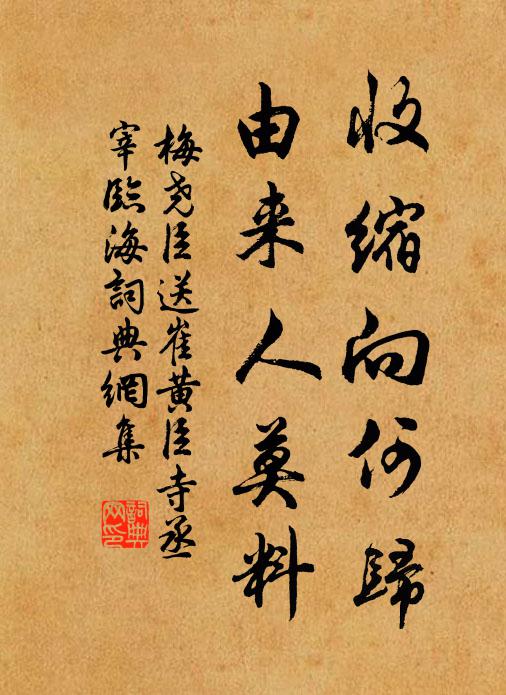 收缩向何歸
由来人莫料
梅尧臣送崔黄臣寺丞
宰臨海詞典網集
詞典
网印